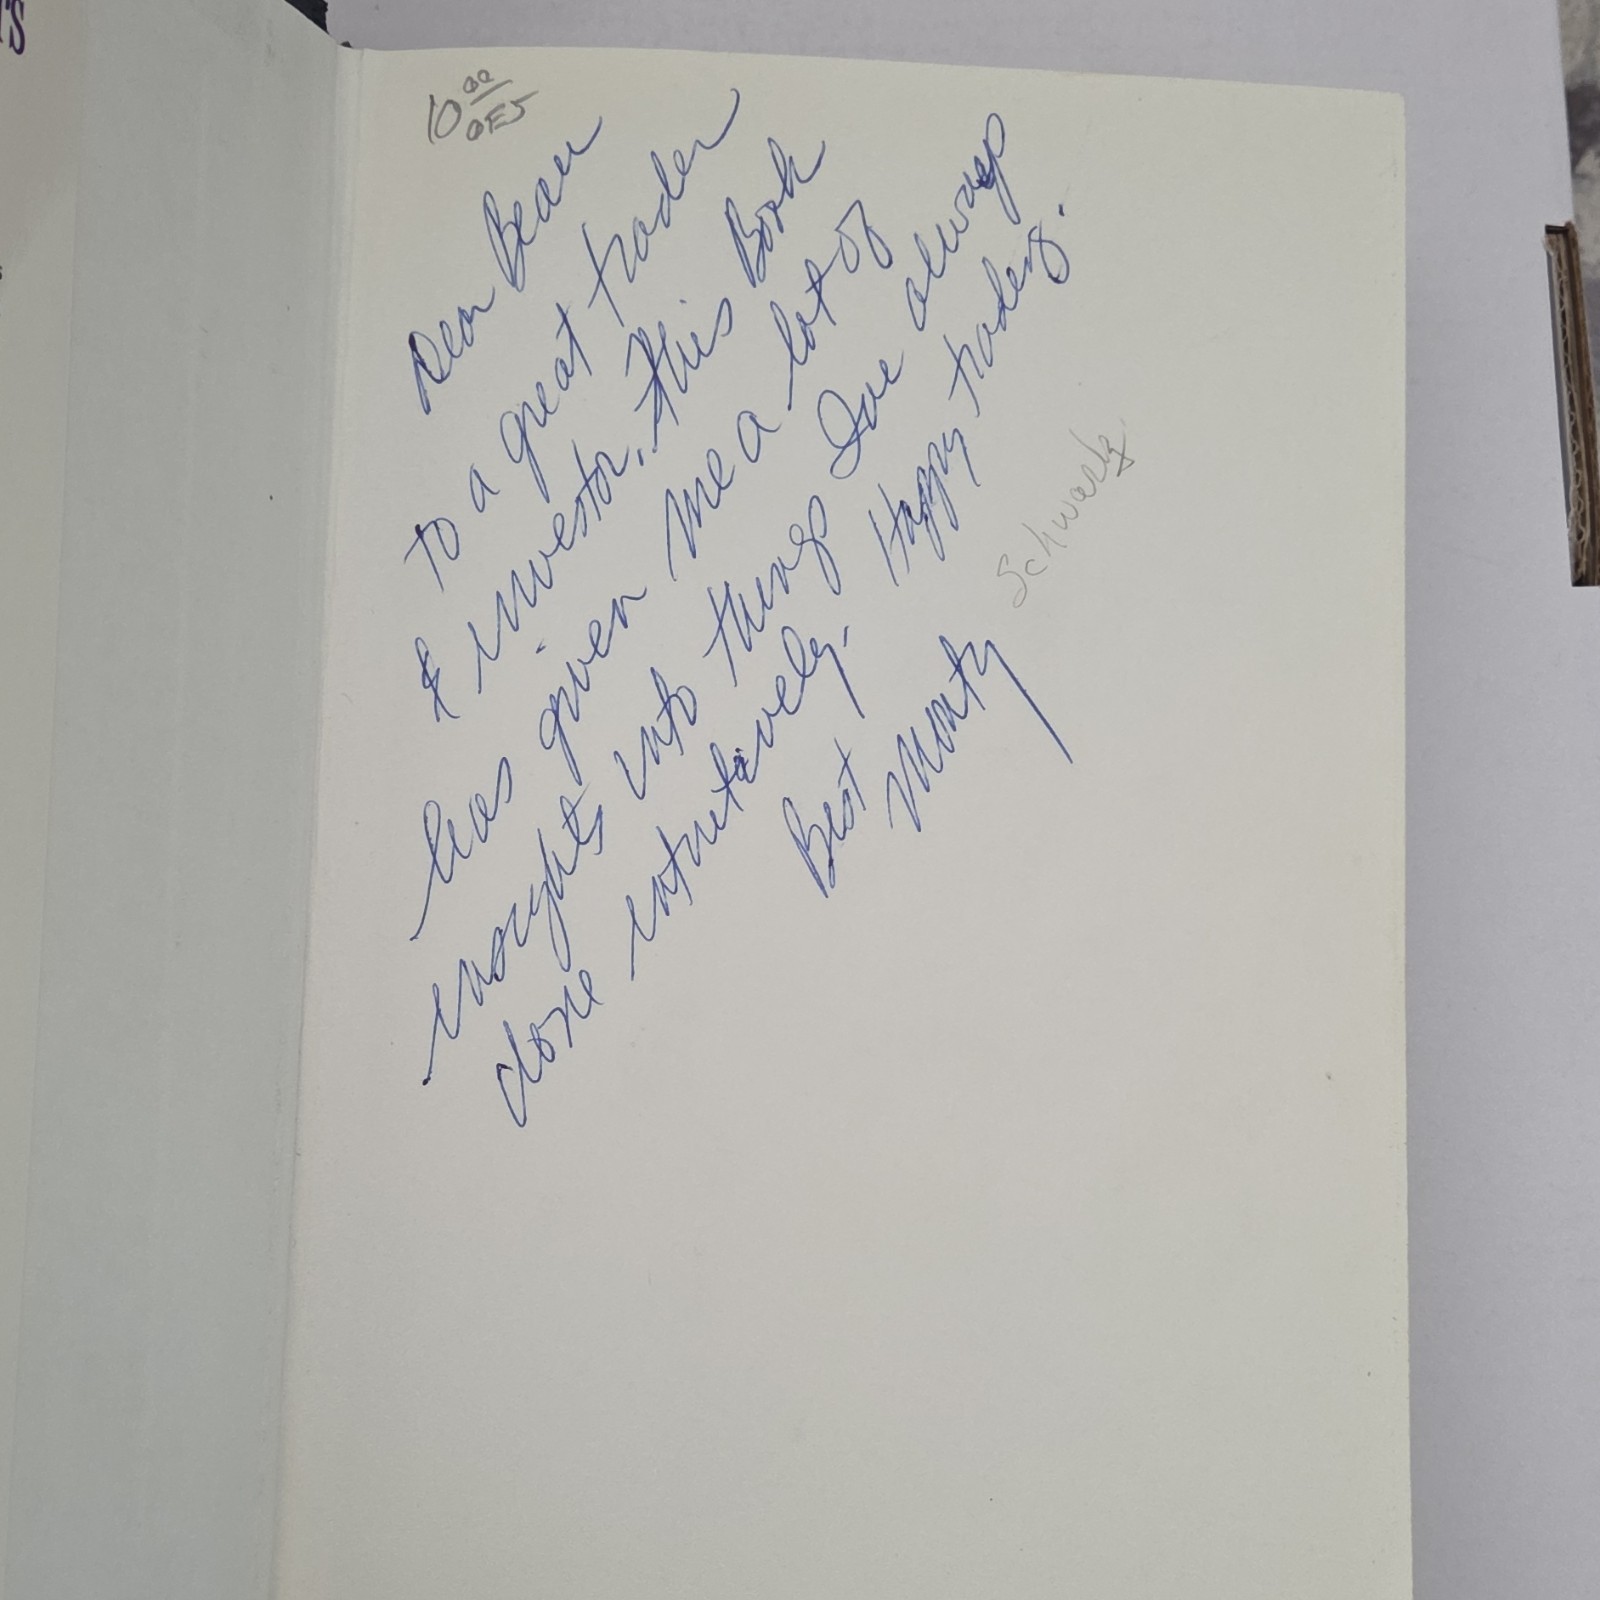 10 00
OFJ
Dear Beau
to a great trader
& investor. This Book
has given me a lot of
insights into things I've always
done intuitively. Happy trading.
Best Monty
Schwartz